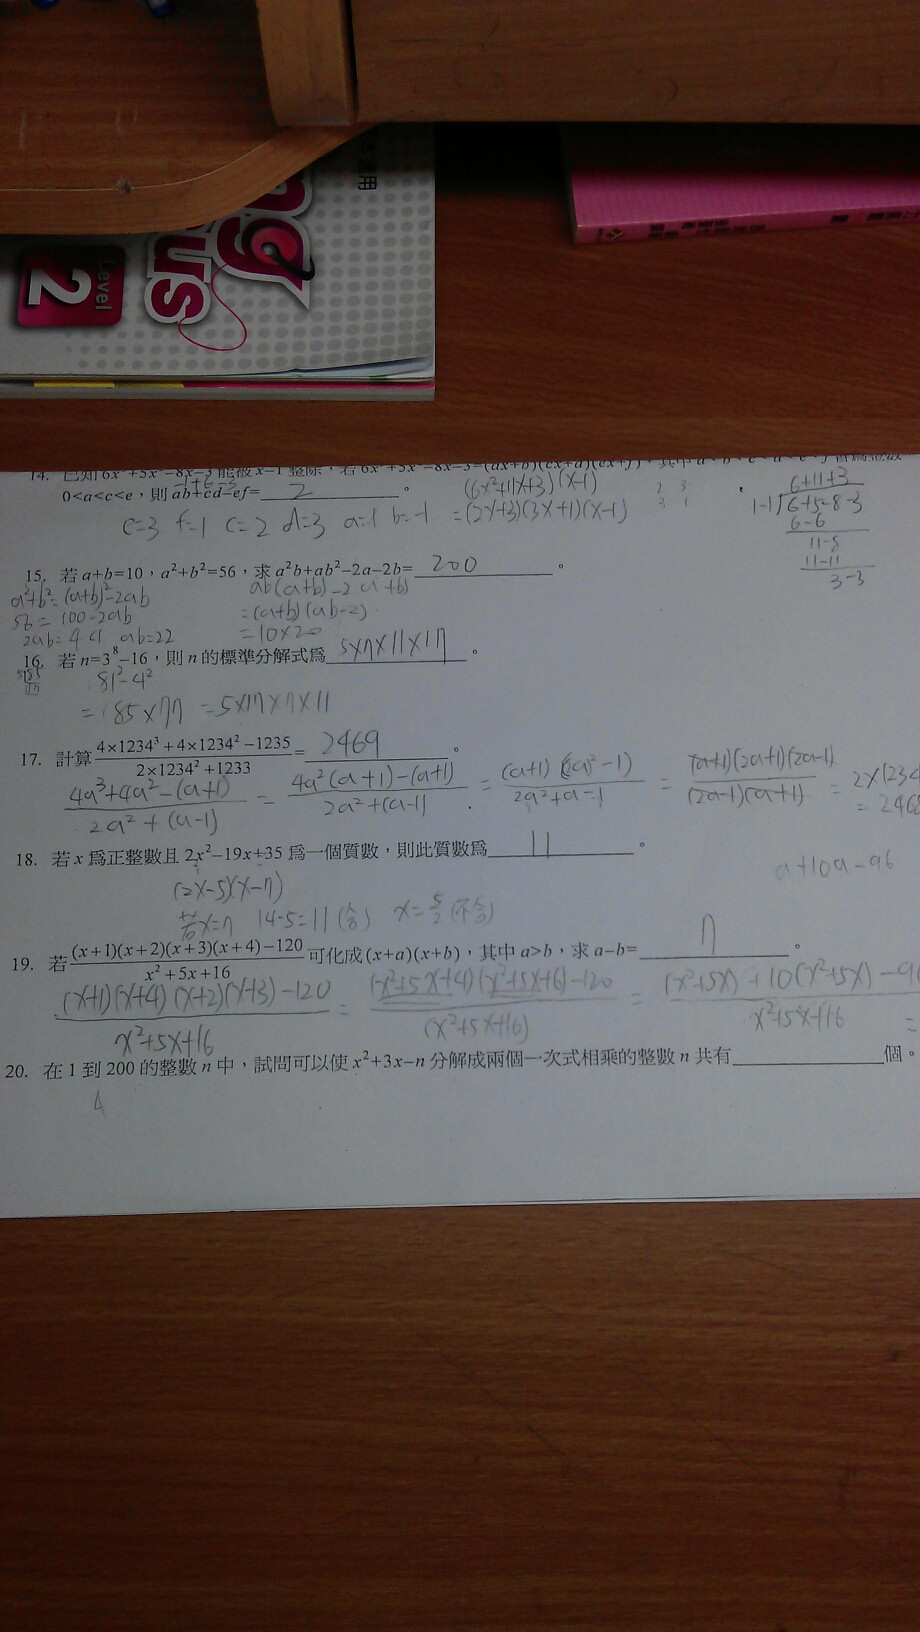 用
ng
us
Level
2
14. 已知 6x³+5x²−8x−3 能被 x−1 整除，若 6x³+5x²−8x−3=(ax+b)(cx+d)(ex+f)，其中
0<a<c<e，則 ab+cd−ef= 2 。
-1+6-3
(6x²+11x+3)(x-1)
=(2x+3)(3x+1)(x-1)
2 3
3 1
e=3 f=1 c=2 d=3 a=1 b=-1
6+11+3
1-1 6+5-8-3
6-6
11-8
11-11
3-3
15. 若 a+b=10，a²+b²=56，求 a²b+ab²−2a−2b= 200 。
a²+b²=(a+b)²-2ab
56=100-2ab
2ab=44 ab=22
ab(a+b)-2(a+b)
=(a+b)(ab-2)
=10×20
16. 若 n=3⁸−16，則 n 的標準分解式為 5×7×11×17 。
81²-4²
=85×77 =5×17×7×11
17. 計算 (4×1234³+4×1234²−1235)/(2×1234²+1233)= 2469 。
(4a³+4a²-(a+1))/(2a²+(a-1)) = (4a²(a+1)-(a+1))/(2a²+(a-1)) = (a+1)(2a)²-1)/(2a²+a-1) = (a+1)(2a+1)(2a-1)/(2a-1)(a+1) = 2×1234
=2468
18. 若 x 為正整數且 2x²−19x+35 為一個質數，則此質數為 11 。
(2x-5)(x-7)
若x=7 14-5=11(合) x=5/2(不合)
a+10a-96
19. 若 ((x+1)(x+2)(x+3)(x+4)−120)/(x²+5x+16) 可化成 (x+a)(x+b)，其中 a>b，求 a−b= 7 。
((x+1)(x+4)(x+2)(x+3)-120)/(x²+5x+16) = ((x²+5x+4)(x²+5x+6)-120)/(x²+5x+16) = ((x²+5x)+10(x²+5x)-96)/(x²+5x+16) =
20. 在 1 到 200 的整數 n 中，試問可以使 x²+3x−n 分解成兩個一次式相乘的整數 n 共有 個。
4